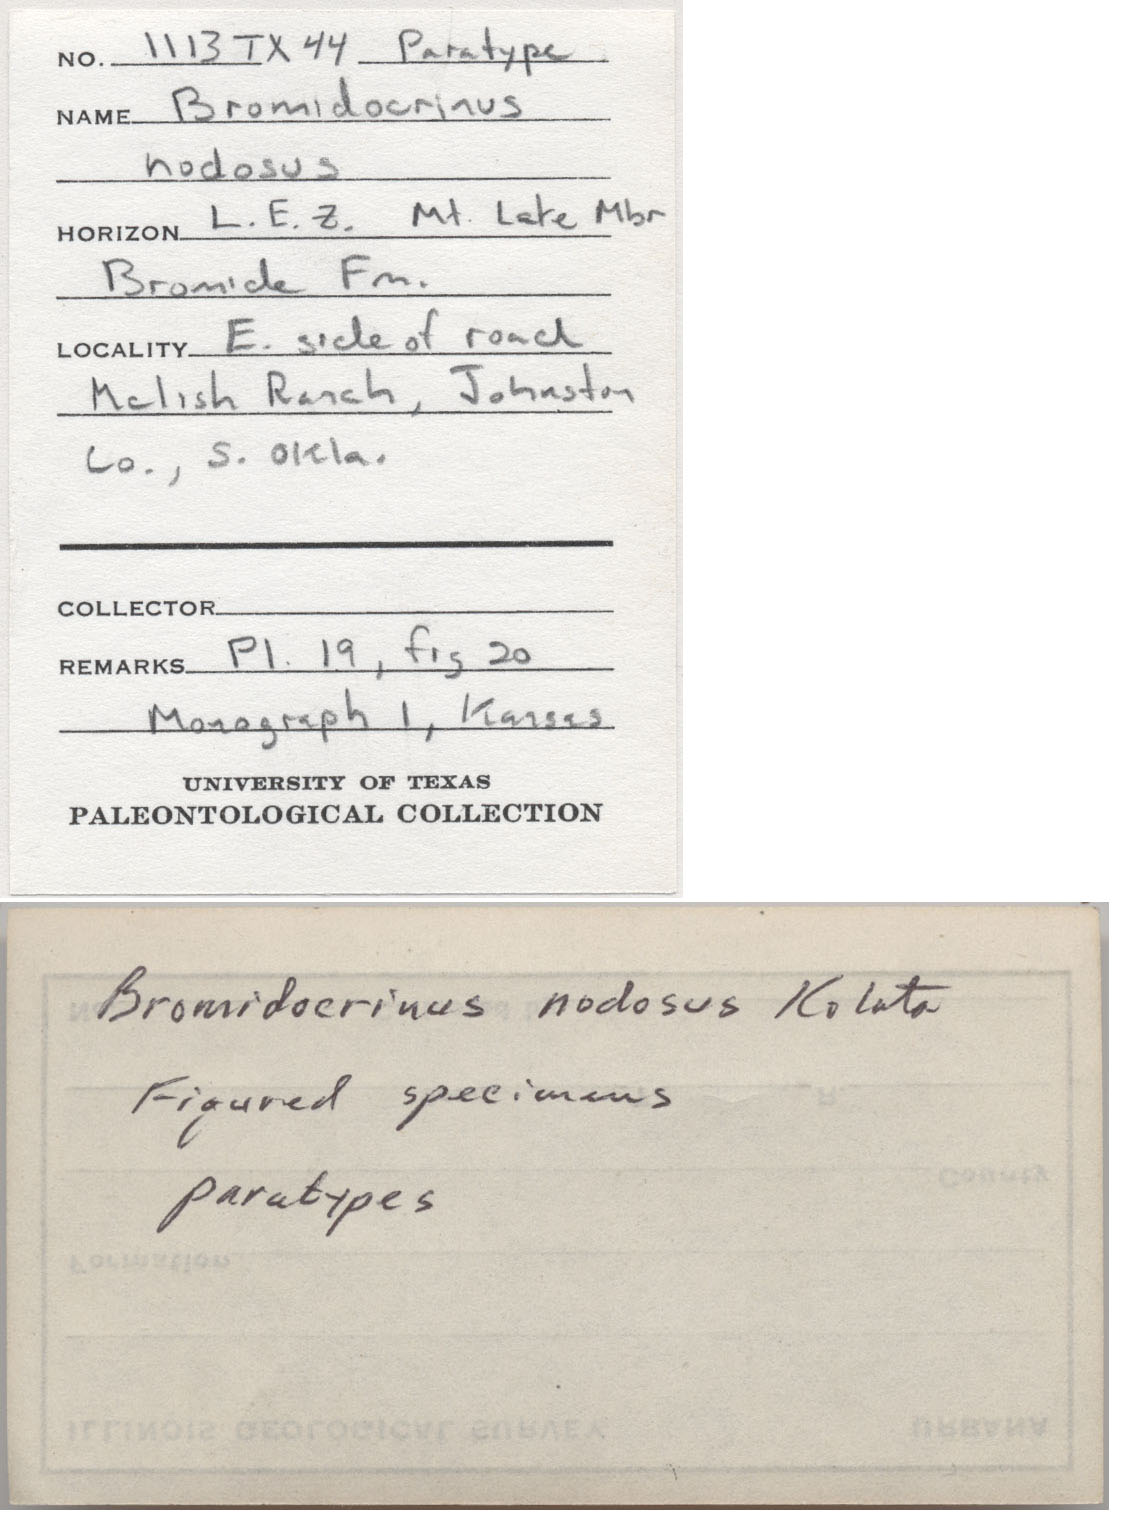 NO. 1113TX44 Paratype
NAME Bromidocrinus
nodosus
HORIZON L.E.Z. Mt. Lake Mbr
Bromide Fm.
LOCALITY E. side of road
Mclish Ranch, Johnston
Co., S. Okla.
COLLECTOR
REMARKS Pl. 19, fig 20
Monograph 1, Kansas
UNIVERSITY OF TEXAS
PALEONTOLOGICAL COLLECTION
Bromidocrinus nodosus Kolata
Figured specimens
paratypes
County
Formation
ILLINOIS GEOLOGICAL SURVEY URBANA